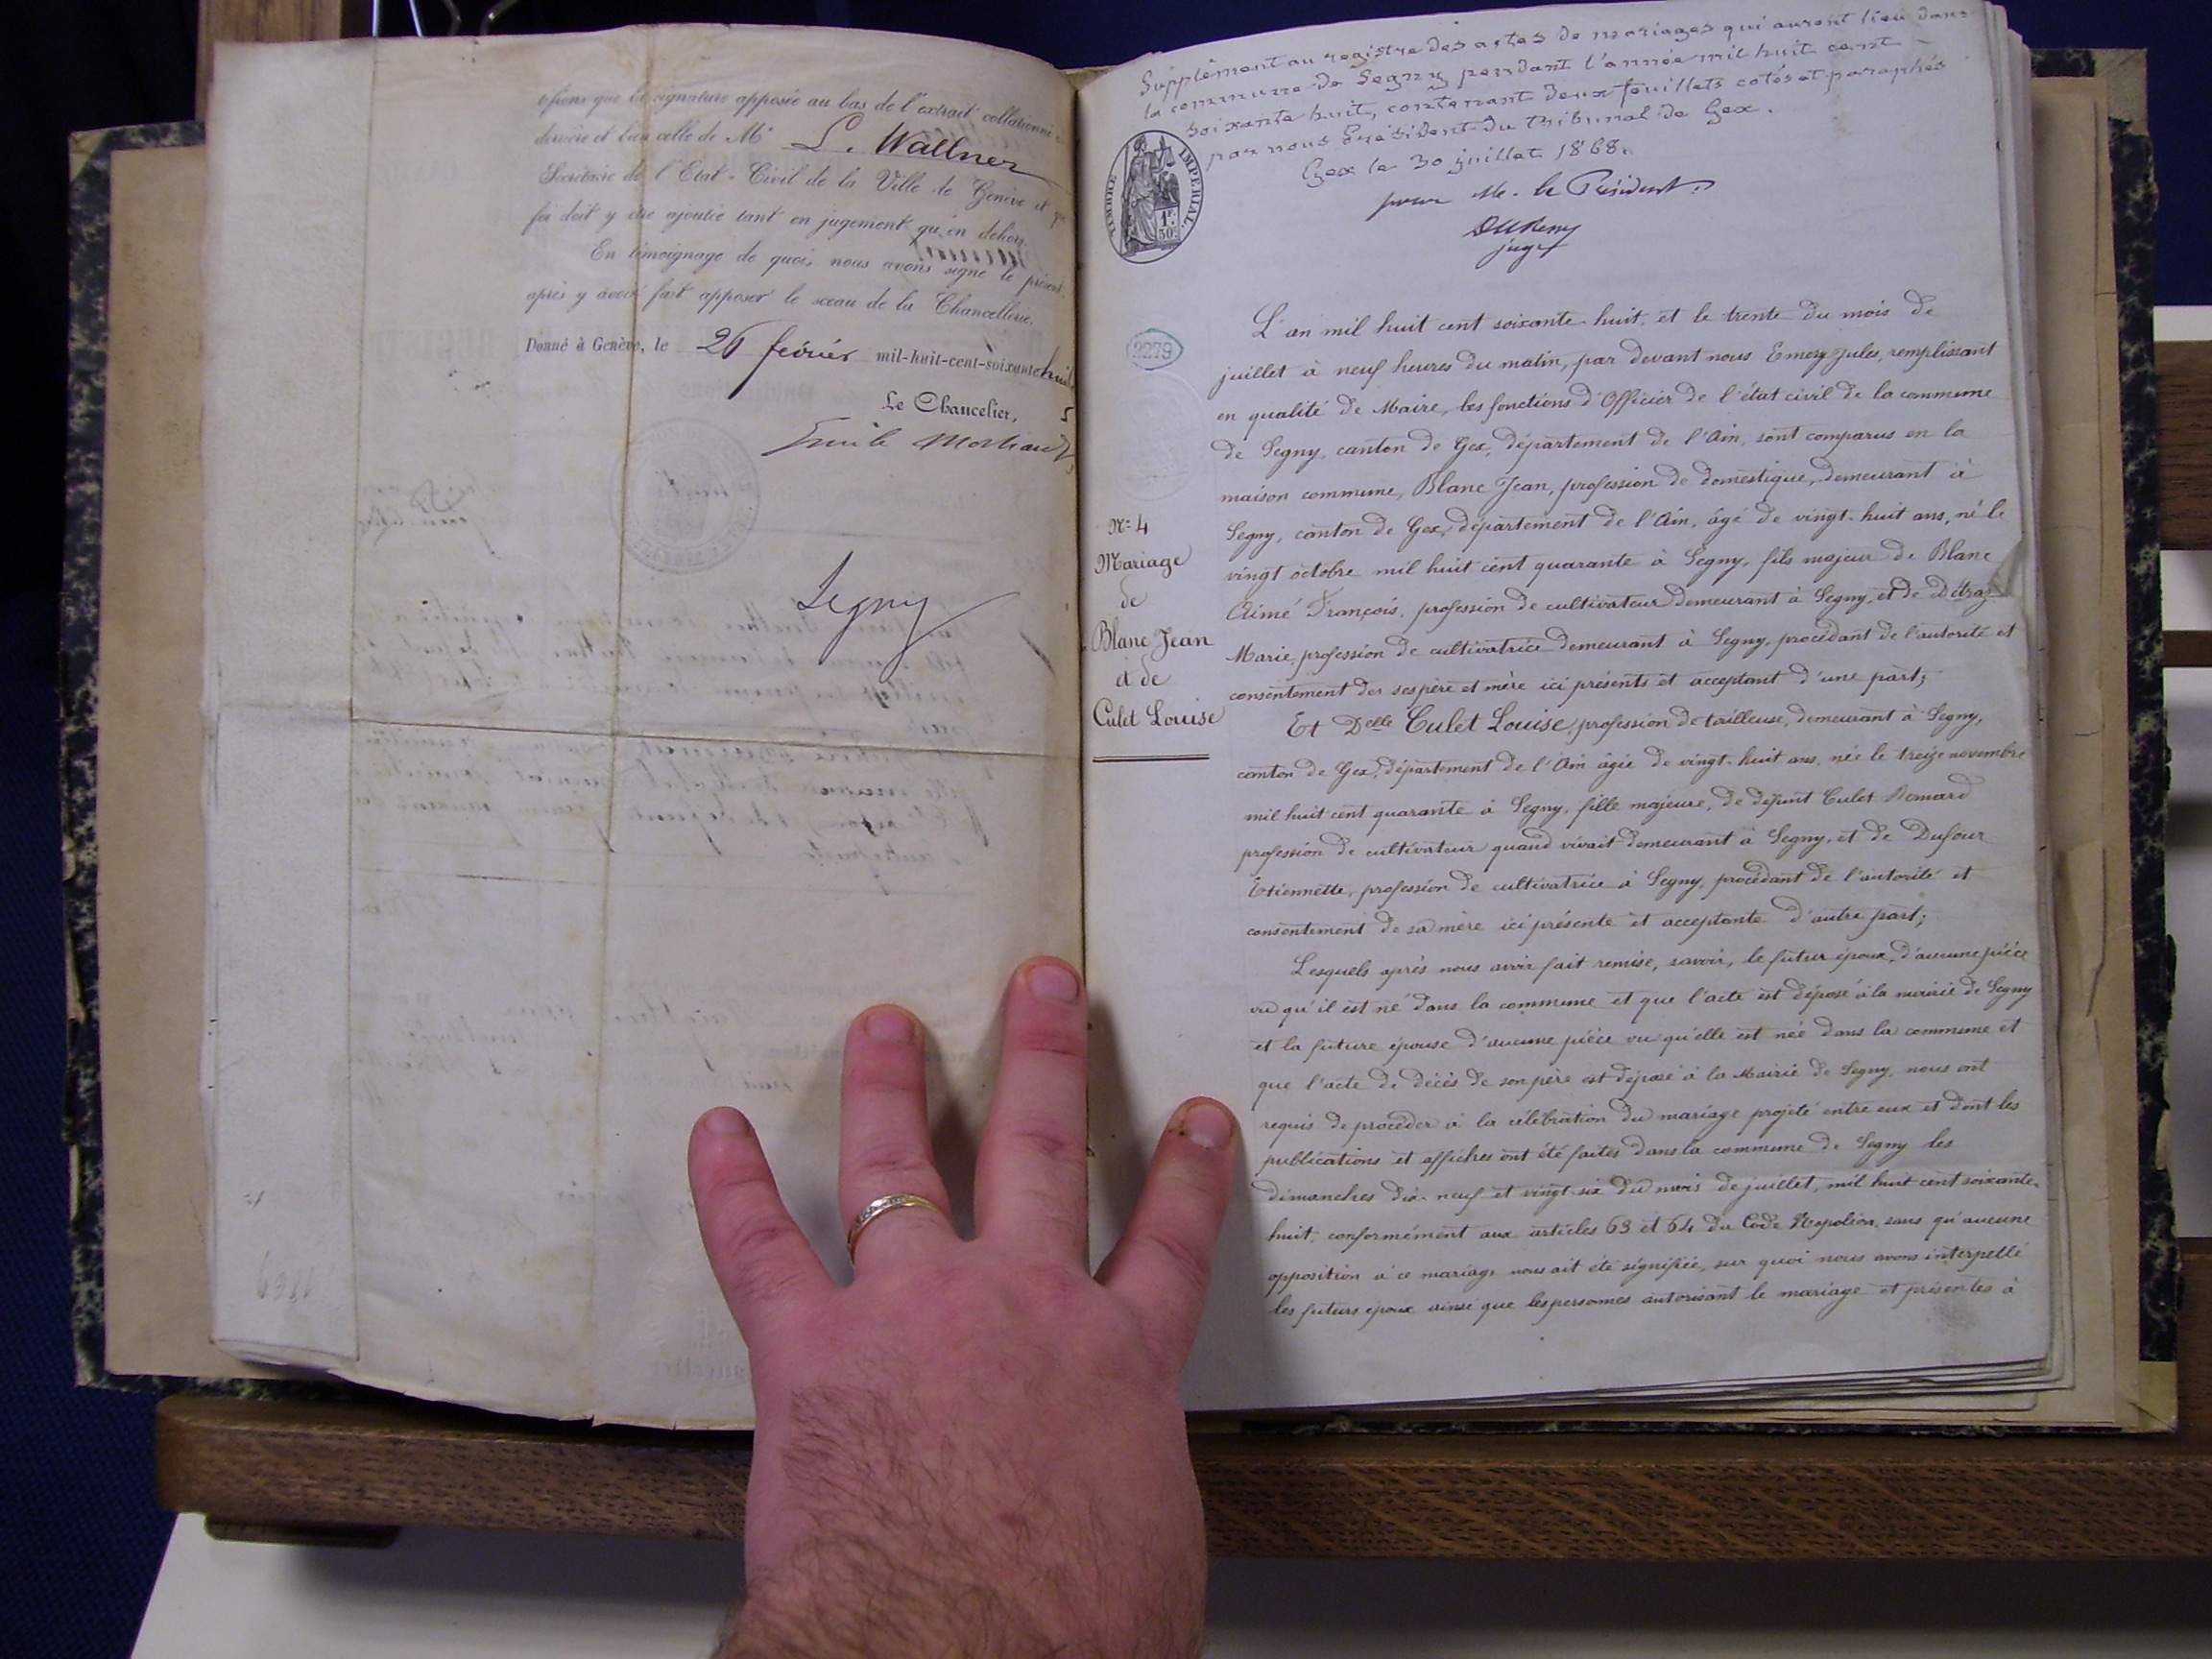 tifions que la signature apposée au bas de l'extrait collationné
derrière et bien celle de Mr L. Wallner
Secrétaire de l'Etat-Civil de la Ville de Genève et que
foi doit y être ajoutée tant en jugement qu'en dehors.
En témoignage de quoi, nous avons signé le présent
après y avoir fait apposer le sceau de la Chancellerie.
Donné à Genève, le 26 février mil-huit-cent-soixante huit
Le Chancelier,
Segny
Supplément au registre des actes de mariages qui auront lieu dans
la commune de Segny pendant l'année mil huit cent
soixante huit, contenant deux feuillets cotés et paraphés
par nous Président du tribunal de Gex.
Gex le 30 juillet 1868.
pour Mr. le Président.
juge
TIMBRE IMPERIAL
1F. 50c.
2279
N° 4
Mariage
de
Blanc Jean
et de
Culet Louise
L'an mil huit cent soixante-huit, et le trente du mois de
juillet à neuf heures du matin, par devant nous Emery Jules, remplissant
en qualité de Maire, les fonctions d'Officier de l'état civil de la commune
de Segny, canton de Gex, département de l'Ain, sont comparus en la
maison commune, Blanc Jean, profession de domestique, demeurant à
Segny, canton de Gex, département de l'Ain, âgé de vingt-huit ans, né le
vingt octobre mil huit cent quarante à Segny, fils majeur de Blanc
Aimé François, profession de cultivateur demeurant à Segny, et de Détraz
Marie, profession de cultivatrice demeurant à Segny, procédant de l'autorité et
consentement des ses père et mère ici présents et acceptant d'une part;
Et Delle Culet Louise, profession de tailleuse, demeurant à Segny,
canton de Gex, département de l'Ain âgée de vingt-huit ans, née le treize novembre
mil huit cent quarante à Segny, fille majeure, de défunt Culet Bernard
profession de cultivateur quand vivait demeurant à Segny, et de Dufour
Etiennette, profession de cultivatrice à Segny, procédant de l'autorité et
consentement de sa mère ici présente et acceptante d'autre part;
Lesquels après nous avoir fait remise, savoir, le futur époux, d'aucune pièce
vu qu'il est né dans la commune et que l'acte est déposé à la mairie de Segny
et la future épouse d'aucune pièce vu qu'elle est née dans la commune et
que l'acte de décès de son père est déposé à la Mairie de Segny, nous ont
requis de procéder à la célébration du mariage projeté entre eux et dont les
publications et affiches ont été faites dans la commune de Segny les
dimanches dix-neuf et vingt-six du mois de juillet, mil huit cent soixante-
huit, conformément aux articles 63 et 64 du Code Napoléon, sans qu'aucune
opposition à ce mariage nous ait été signifiée, sur quoi nous avons interpellé
les futurs époux ainsi que les personnes autorisant le mariage et présentes à